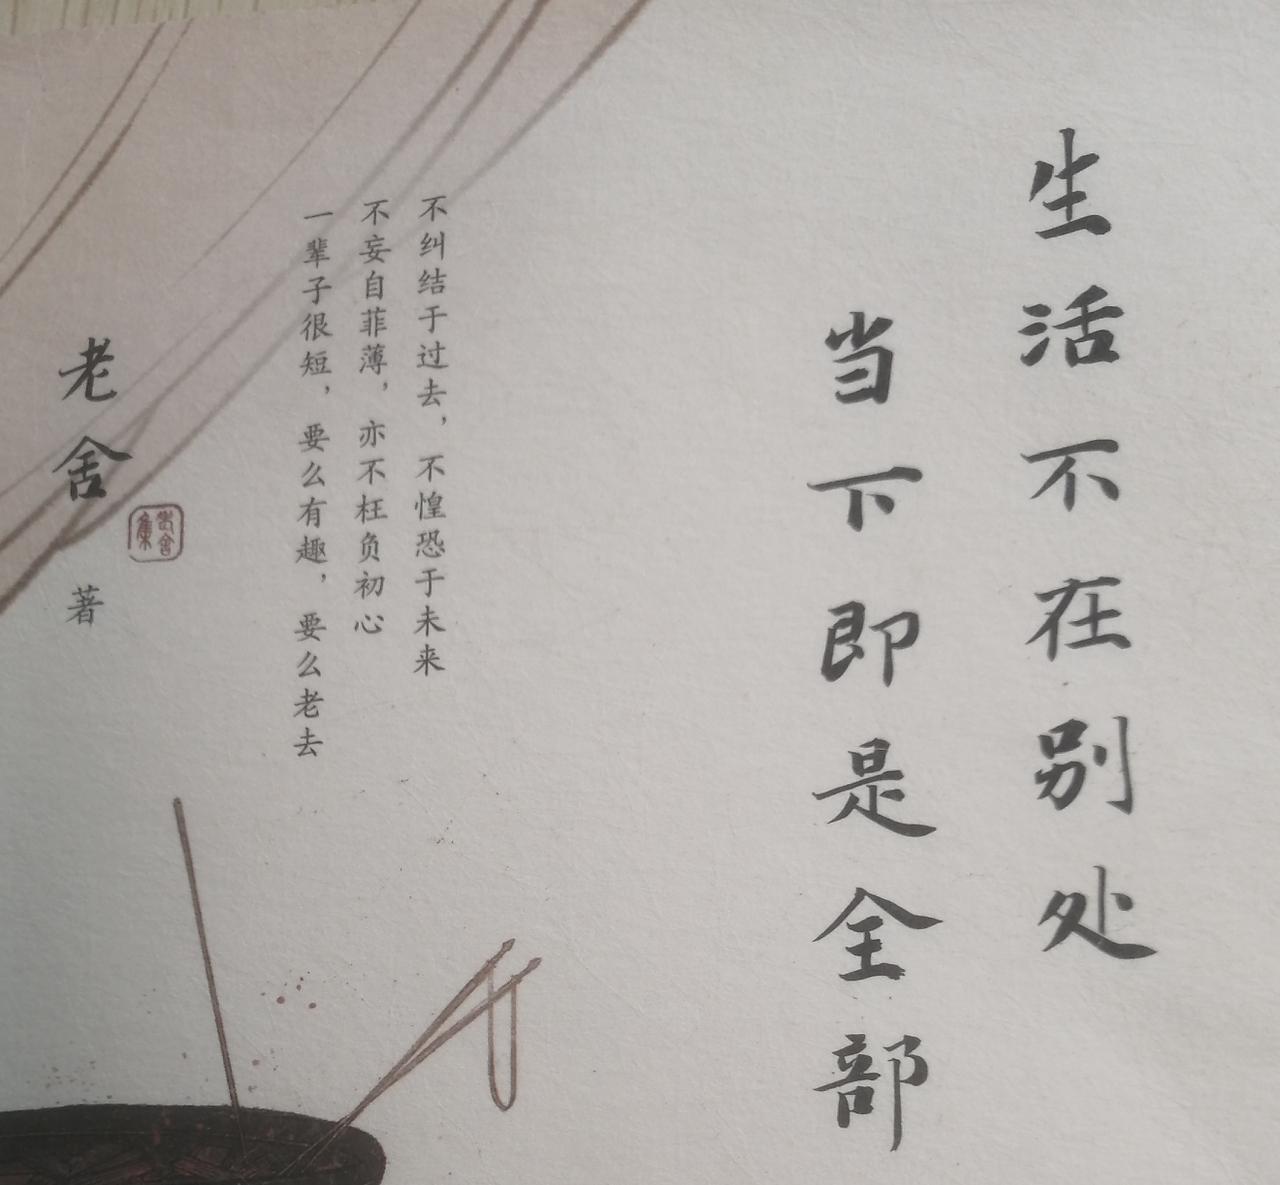 生活不在别处
当下即是全部
不纠结于过去，不惶恐于未来
不妄自菲薄，亦不枉负初心
一辈子很短，要么有趣，要么老去
老舍
老舍集
著